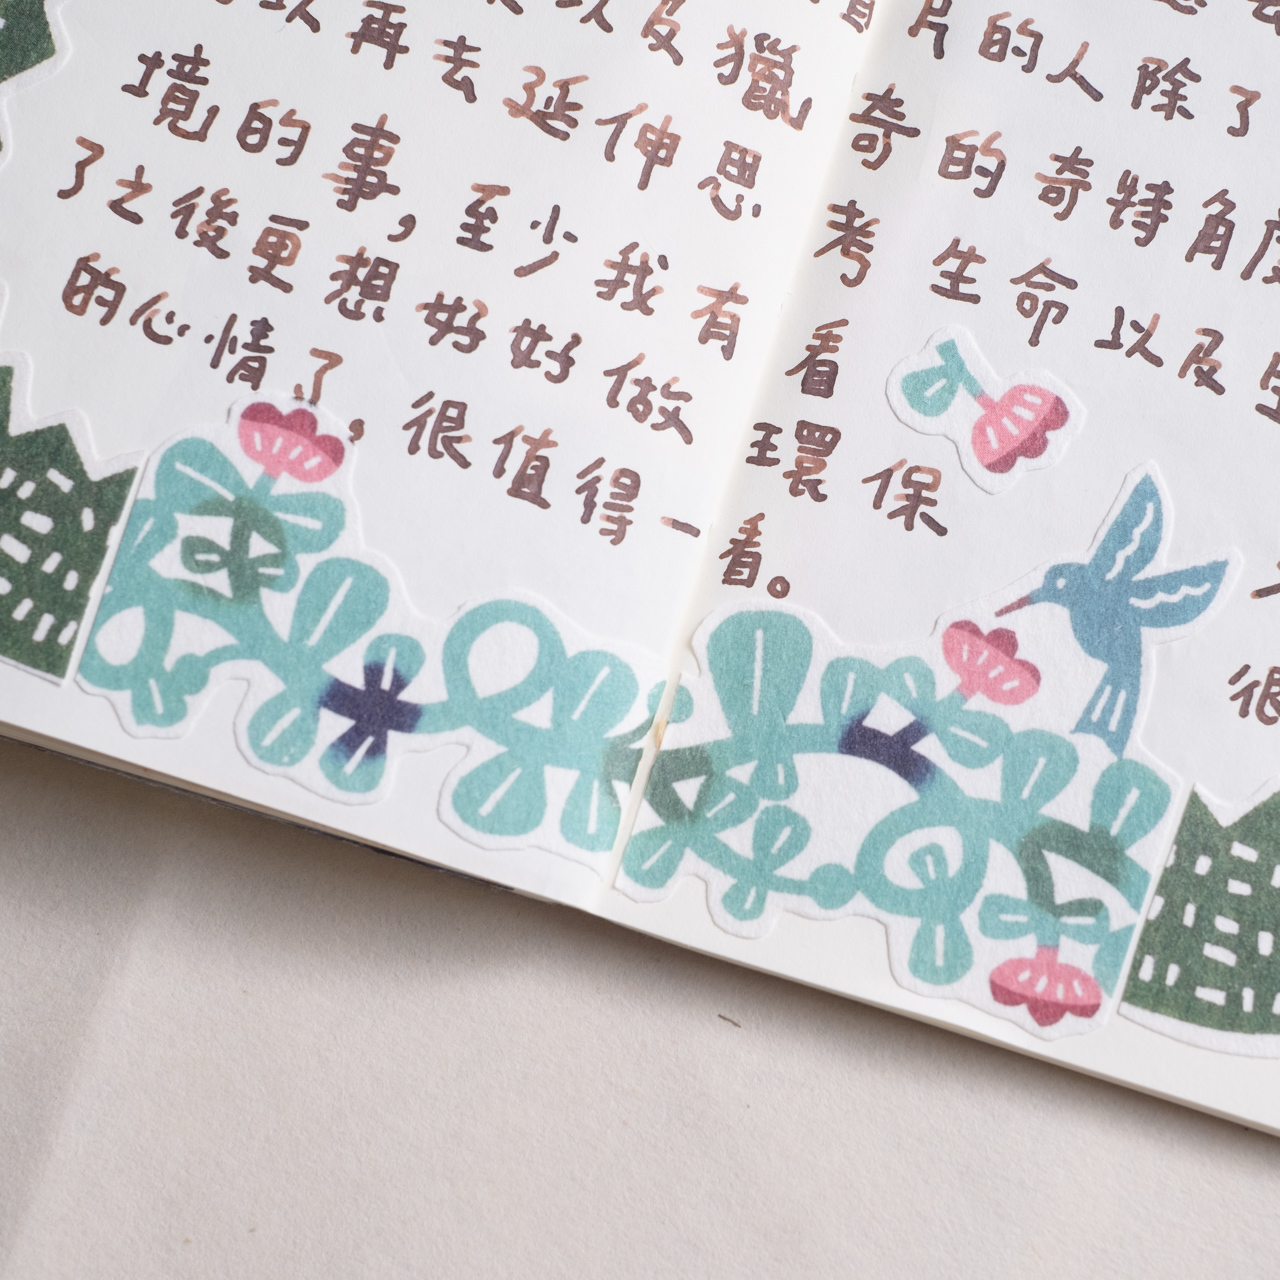 片的人除了
以及獵奇的奇特角度
以再去延伸思考生命以及
境的事，至少我有看
了之後更想好好做環保
的心情了，很值得一看。
很